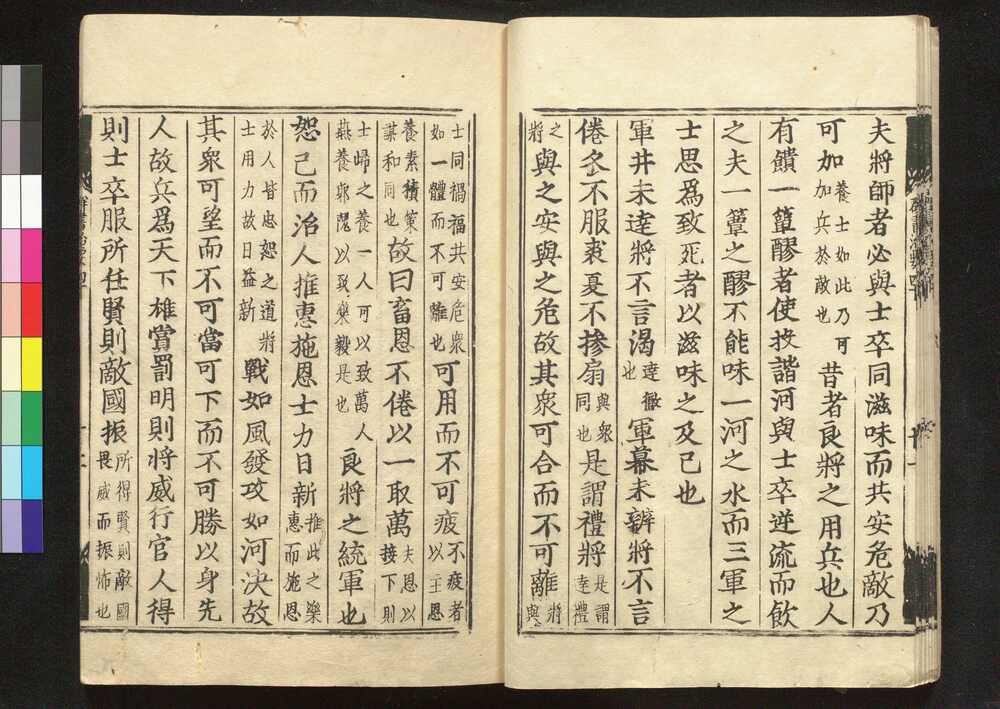 夫將師者必與士卒同滋味而共安危敵乃
可加養士如此乃可加兵於敵也昔者良將之用兵也人
有饋一簞醪者使投諸河與士卒逆流而飲
之夫一簞之醪不能味一河之水而三軍之
士思爲致死者以滋味之及己也
軍井未達將不言渴達徹也軍幕未辦將不言
倦冬不服裘夏不摻扇與衆同也是謂禮將是謂達禮
之將與之安與之危故其衆可合而不可離將與
士同禍福共安危衆如一體而不可離也可用而不可疲不疲者以主恩
養素積策謀和同也故曰畜恩不倦以一取萬夫恩以接下則
士歸之養一人可以致萬人燕養郭隗以致樂毅是也良將之統軍也
恕己而治人推惠施恩士力日新推此之樂惠而施恩
於人皆忠恕之道將士用力故日益新戰如風發攻如河決故
其衆可望而不可當可下而不可勝以身先
人故兵爲天下雄賞罰明則將威行官人得
則士卒服所任賢則敵國振所得賢則敵國畏威而振怖也